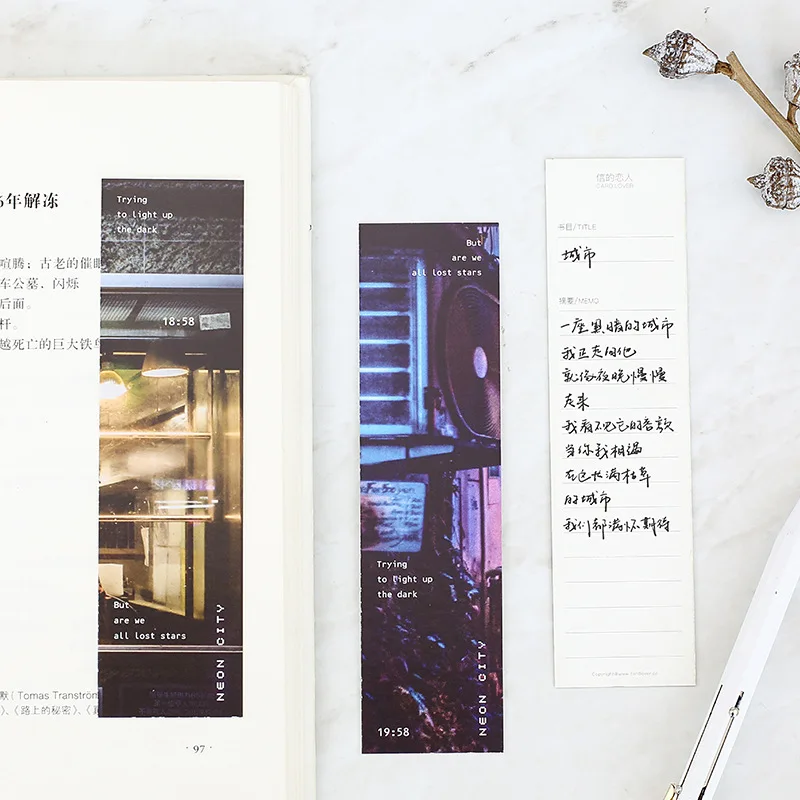 年解冻
喧腾；古老的催眠
车公墓．闪烁
后面。
杆。
越死亡的巨大铁
Tomas Tranström
、《路上的秘密》、《
· 97 ·
Trying
to light up
the dark
18:58
But
are we
all lost stars
NEON CITY
But
are we
all lost stars
Trying
to light up
the dark
NEON CITY
19:58
信的恋人
CARD LOVER
书目/TITLE
城市
摘要/MEMO
一座黑暗的城市
我正走向他
就像夜晚慢慢
灰来
我看不见它的音歌
当你我相遇
在这长满枯草
的城市
我们都满怀期待